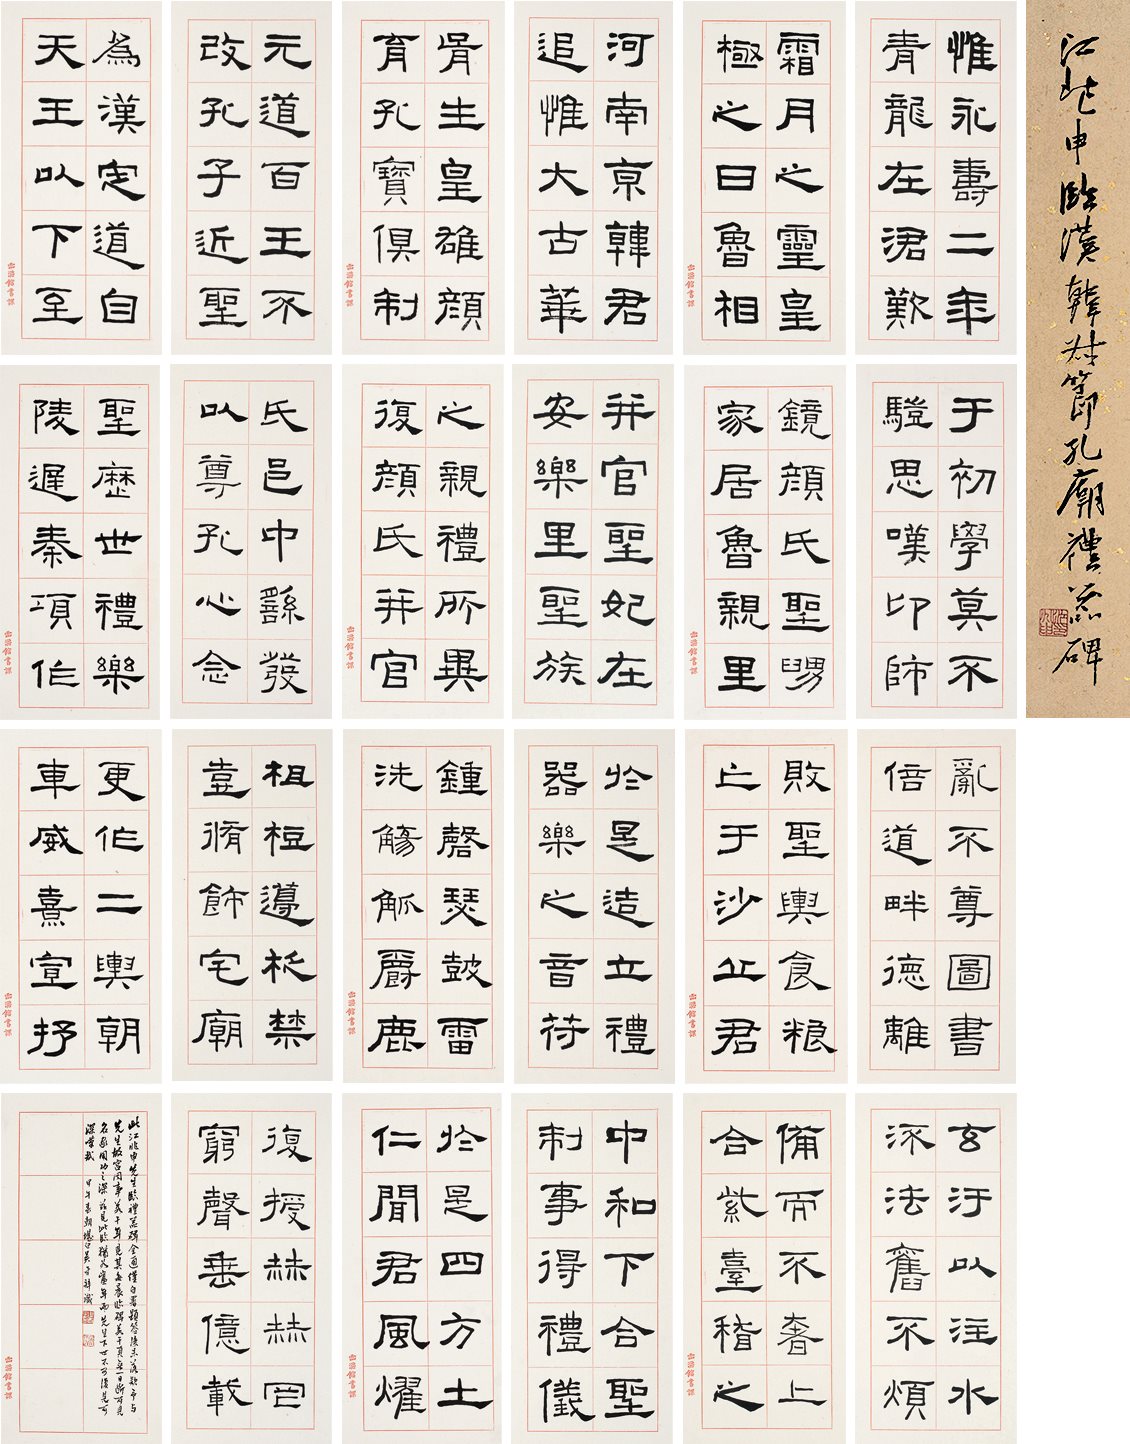 江兆申臨漢韓叔節孔廟禮器碑
惟永壽二年
青龍在涒歎
霜月之靈皇
極之日魯相
河南京韓君
追惟大古華
胥生皇雄顏
育孔寶俱制
元道百王不
改孔子近聖
為漢定道自
天王以下至
于初學莫不
驡思嘆卬師
鏡顏氏聖舅
家居魯親里
并官聖妃在
安樂里聖族
之親禮所異
復顏氏并官
氏邑中繇發
以尊孔心念
聖歷世禮樂
陵遲秦項作
亂不尊圖書
倍道畔德離
敗聖輿食粮
亡于沙丘君
於是造立禮
器樂之音苻
鍾磬瑟鼓雷
洗觴觚爵鹿
柤梪籩柉禁
壺脩飾宅廟
更作二輿朝
車威熹宣抒
玄汙以注水
流法舊不煩
備而不奢上
合紫臺稽之
中和下合聖
制事得禮儀
於是四方土
仁聞君風燿
復授赫赫罔
窮聲垂億載
此江兆申先生臨禮器碑全通僅自署題簽後未落款予与
先生故宮同事
名家用功之深
深嘆哉